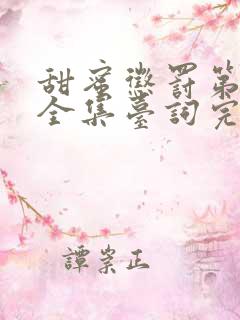 甜蜜懲罰第
全集臺詞完
譚崇正